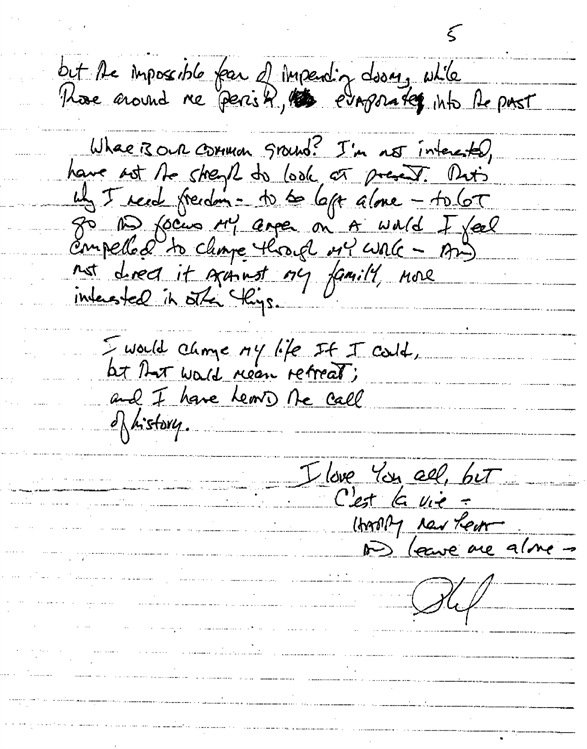 5
but the impossible fear of impending doom, while
those around me perish, evaporates into the past
Where is our common ground? I'm not interested,
have not the strength to look at present. That's
why I need freedom - to be left alone - to let
go AND focus MY anger on A world I feel
compelled to change through MY work - AND
not direct it against MY family, more
interested in other things.
I would change MY life If I could,
but that would mean retreat;
and I have heard the call
of history.
I love You all, but
C'est la vie -
HAPPY New Year
AND leave me alone -